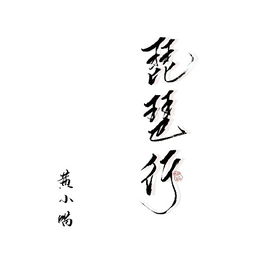 琵琶行
黄小喵